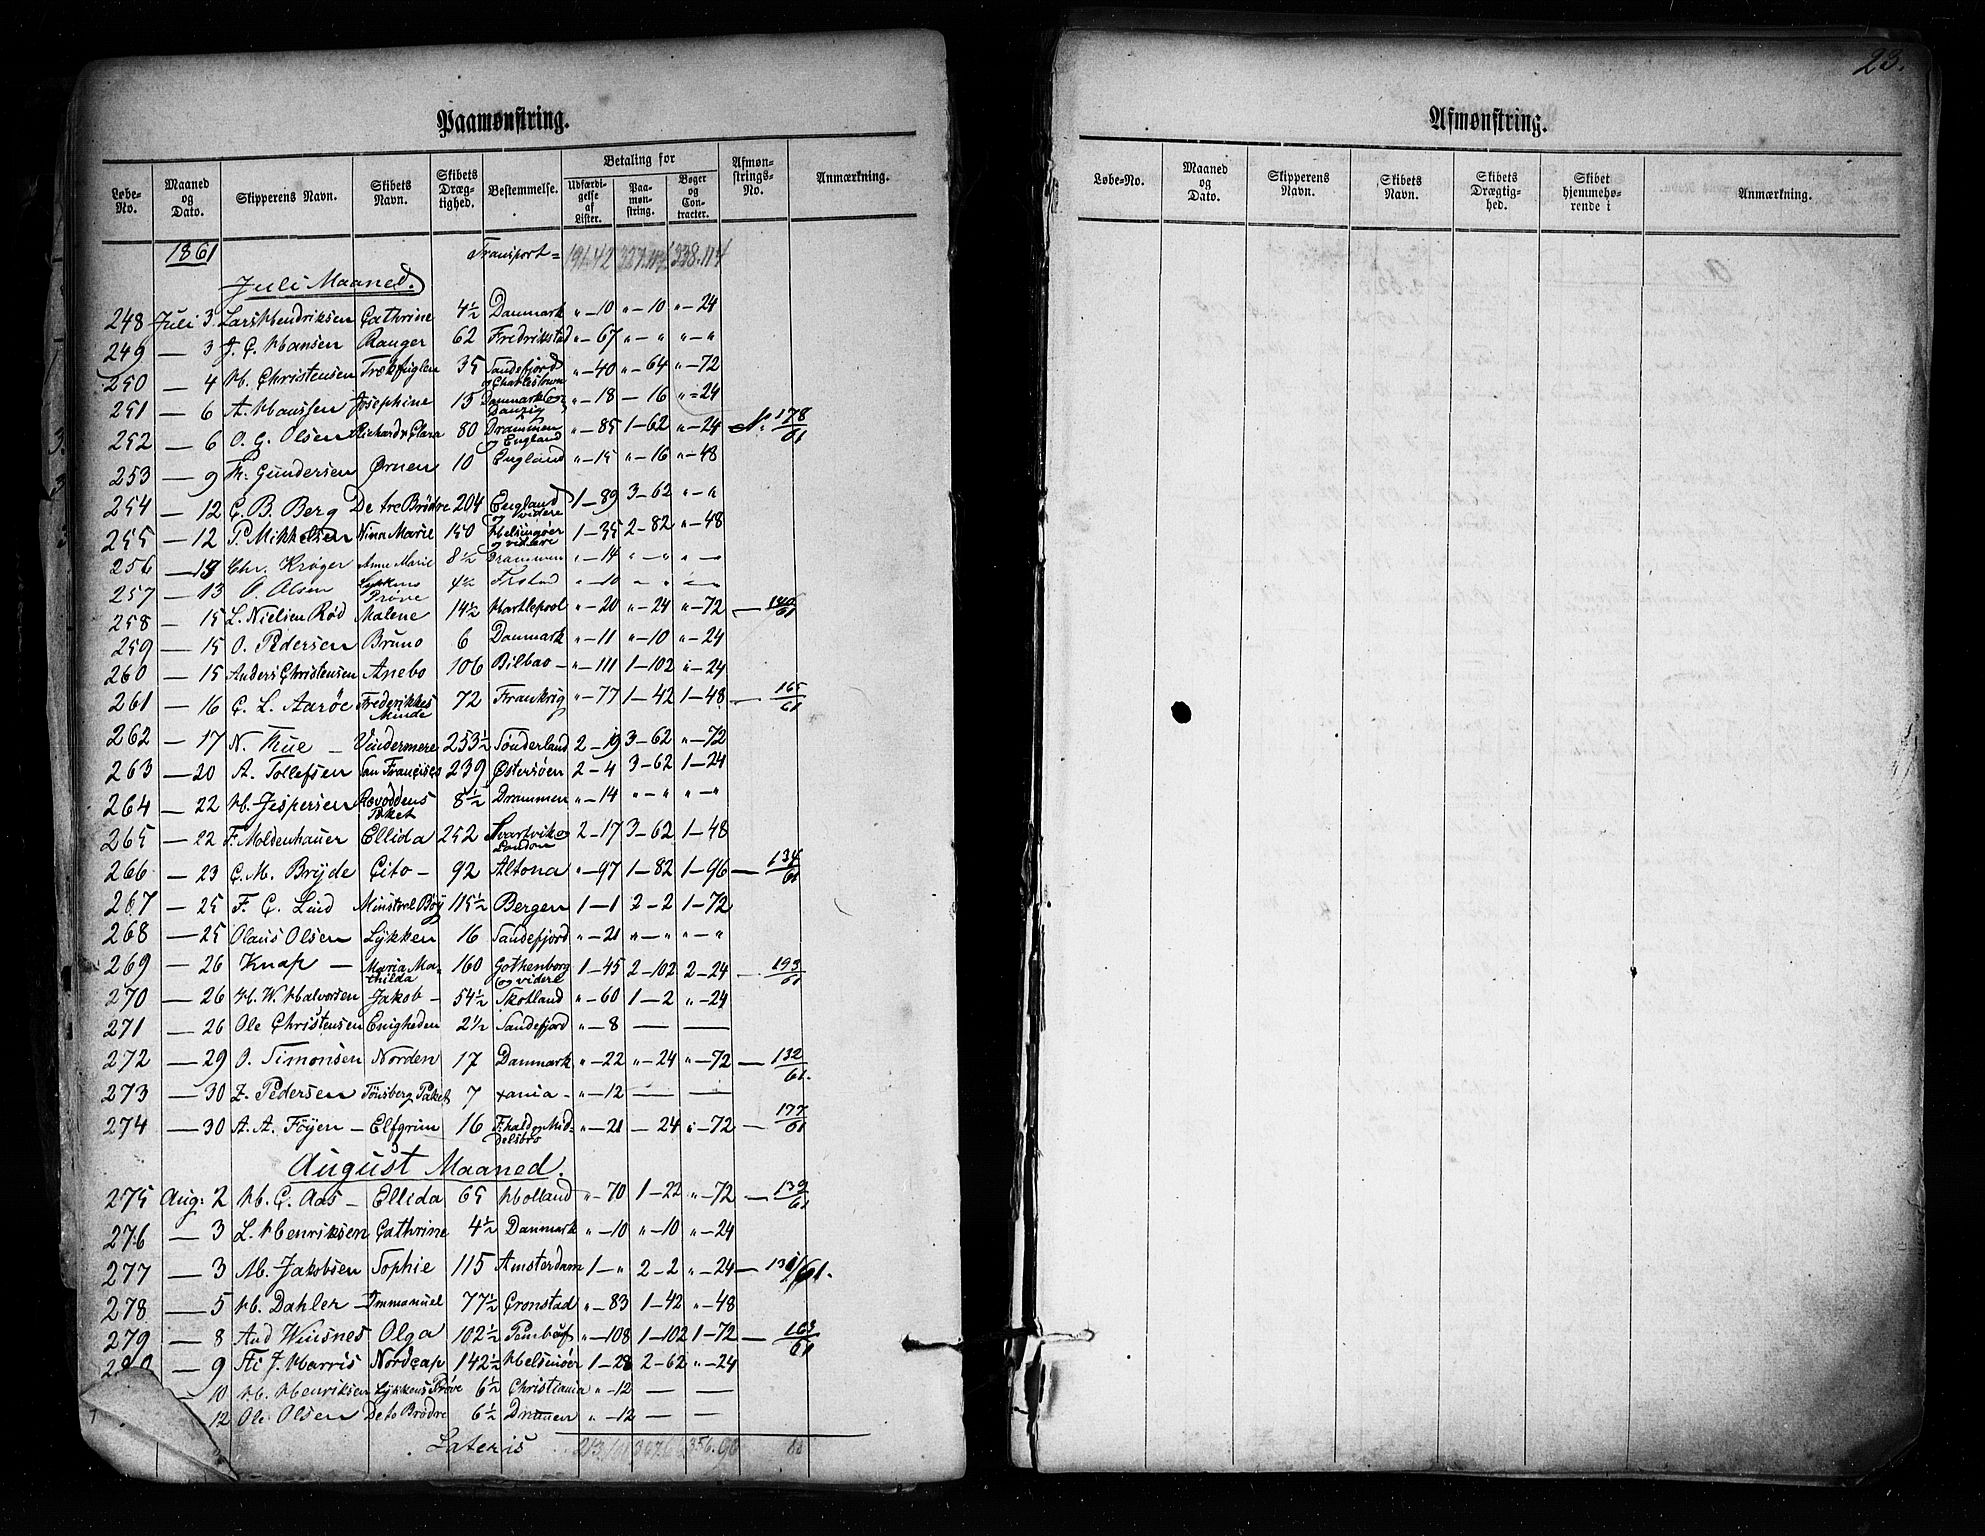 Paamønstring.
Løbe-No. Maaned og Dato. Skipperens Navn. Skibets Navn. Skibets Dræg-tighed. Bestemmelse. Betaling for Udfærdi-gelse af Lister. Paa-møn-string. Bøger og Con-tracter. Afmøn-strings-No. Anmærkning.
1861 Transport = 191.42 227.114 238.114
Juli Maaned.
248 Juli 3 Lars Hendriksen Cathrine 4½ Danmark " — 10 " — 10 " — 24
249 — 3 J. C. Hansen Ranger 62 Fredrikstad " — 67 " — " " — "
250 — 4 H. Christensen Trækfuglen 35 Sandefjord og Charlestown " — 40 " — 64 " — 72
251 — 6 A. Hanssen Josephine 15 Danmark og Danzig " — 18 — 16 " = 24
252 — 6 O. G. Olsen Richard & Clara 80 Drammen og England " — 85 1 — 62 " — 24 No 178/61
253 — 9 Th. Gundersen Ørnen 10 England " — 15 " — 16 " — 48
254 — 12 C. B. Berg De tre Brødre 204 England og videre 1 — 89 3 — 62 " — "
255 — 12 P. Mikkelsen Nina Marie 150 Helsingøer og videre 1 — 35 2 — 82 " — 48
256 — 13 Chr. Krøger Anne Marie 8½ Drammen " — 14 " — " " —
257 — 13 O. Olsen Lykkens Prøve 4½ Frstad " — 10 " — " " —
258 — 15 L. Nielsen Rød Malene 14½ Hartlepool " — 20 " — 24 " — 72 — 140/61
259 — 15 O. Pedersen Bruno 6 Danmark " — 11 " — 10 " — 24
260 — 15 Anders Christensen Anebo 106 Bilbao — " — 111 1 — 102 " — 24
261 — 16 C. L. Aarøe Frederikkes Minde 72 Frankrig " — 77 1 — 42 1 — 48 — 165/61
262 — 17 N. Thue — Vindermere 253½ Sønderland 2 — 19 3 — 62 " — 72
263 — 20 A. Tollefsen San Francisco 239 Østersøen 2 — 4 3 — 62 1 — 24
264 — 22 H. Jespersen Rævoddens Paket 8½ Drammen " — 14 " — " " — "
265 — 22 F. Moldenhauer Ellida 252 Svartvik og London 2 — 17 3 — 62 1 — 48
266 — 23 C. M. Bryde Cito — 92 Altona " — 97 1 — 82 1 — 96 — 134/61
267 — 25 F. C. Lind Minstrel Boy 115½ Bergen 1 — 1 2 — 2 1 — 72
268 — 25 Olaus Olsen Lykken 16 Sandefjord " — 21 " — " " — "
269 — 26 Knap — Maria Mathilda 160 Gothenborg og videre 1 — 45 2 — 102 2 — 24 — 193/61
270 — 26 H. W. Halvorsen Jakob — 54½ Skotland " — 60 1 — 2 " — 24
271 — 26 Ole Christensen Enigheden 2½ Sandefjord " — 8 — —
272 — 29 O. Simonsen Norden 17 Danmark " — 22 " — 24 " — 72 — 132/61.
273 — 30 Z. Pedersen Tönsberg Paket 7 xania — " — 12 — —
274 — 30 A. A. Föyen — Elfgrim 16 F:hald og Middelsbro " — 21 — 24 " — 72 — 177/61
August Maaned.
275 Aug: 2 H. C. Aas — Ellida 65 Holland " — 70 1 — 22 " — 72 — 139/61
276 — 3 L. Henriksen Cathrine 4½ Danmark " — 10 " — 10 " — 24
277 — 3 M. Jakobsen Sophie 115 Amsterdam 1 — " 2 — 2 " — 24 — 131/61.
278 — 5 H. Dahler — Immanuel 77½ Cronstad " — 83 1 — 42 " — 48
279 — 8 And Wiisnes Olga 102½ " — 108 1 — 102 1 — 72 — 163/61
280 — 9 J. Harris Nordcap 142½ Helsinöer 1 — 28 2 — 62 " — 24
10 H. Henriksen Lykkens Prøve 6½ Christiania " — 12 — —
12 Ole Olsen De to Brödre 6½ Dramen " — 12 — —
Lateris
23.
Afmønstring.
Løbe-No. Maaned og Dato. Skipperens Navn. Skibets Navn. Skibets Drægtig-hed. Skibet hjemmehø-rende i Anmærkning.